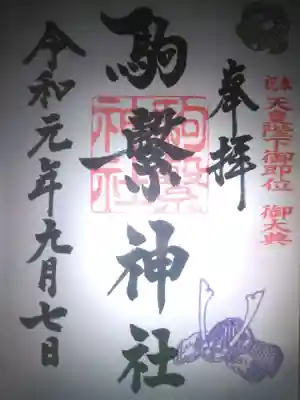 奉拝
天皇陛下御即位 御大典
駒繋神社
駒繋神社
令和元年九月七日